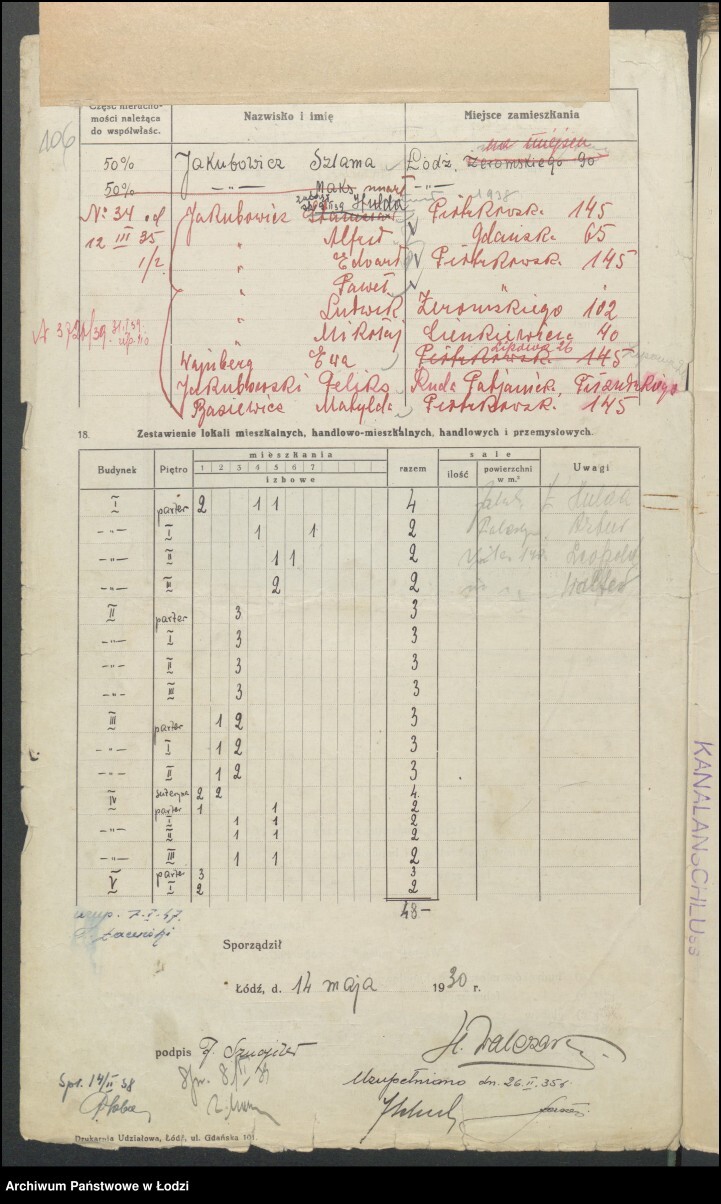 106
Część nierucho-
mości należąca
do współwłaśc.
Nazwisko i imię
Miejsce zamieszkania
50% Jakubowicz Szlama Łódź, Żeromskiego 90
50% -"- Maks umarł -"-
Hulda 1938
№ 34 of Jakubowicz Stanisław Piotrkowsk. 145
12 III 35 " Alfred Gdańsk. 65
1/2 " Edward Piotrkowsk. 145
" Paweł "
" Ludwik Żeromskiego 102
" Mikołaj Sienkiewicza 40
Lipowa 26
Wajnberg Ewa Piotrkowsk. 145
Jakubowski Feliks Ruda Pabjanick. Piłsudskiego
Basiewicz Matylda Piotrkowsk. 145
18. Zestawienie lokali mieszkalnych, handlowo-mieszkalnych, handlowych i przemysłowych.
Budynek Piętro mieszkania razem sale Uwagi
1 2 3 4 5 6 7
izbowe
ilość powierzchni w m.²
I parter 2 1 1 4
-"- I 1 1 2
-"- II 1 1 2 Leopold
-"- III 2 2 Walter
II parter 3 3
-"- I 3 3
-"- II 3 3
-"- III 3 3
III parter 1 2 3
-"- I 1 2 3
-"- II 1 2 3
IV suteryna 2 2 4
parter 1 1 2
I 1 1 2
-"- II 1 1 2
-"- III 1 1 2
V parter 3 3
I 2 2
48-
uzup. 7.I.47.
Sporządził
Łódź, d. 14 maja 1930 r.
podpis
Spr. 14/II 38
Uzupełniono dn. 26.II.35 r.
Drukarnia Udziałowa, Łódź, ul. Gdańska 101.
KANALANSCHLUSS
Archiwum Państwowe w Łodzi